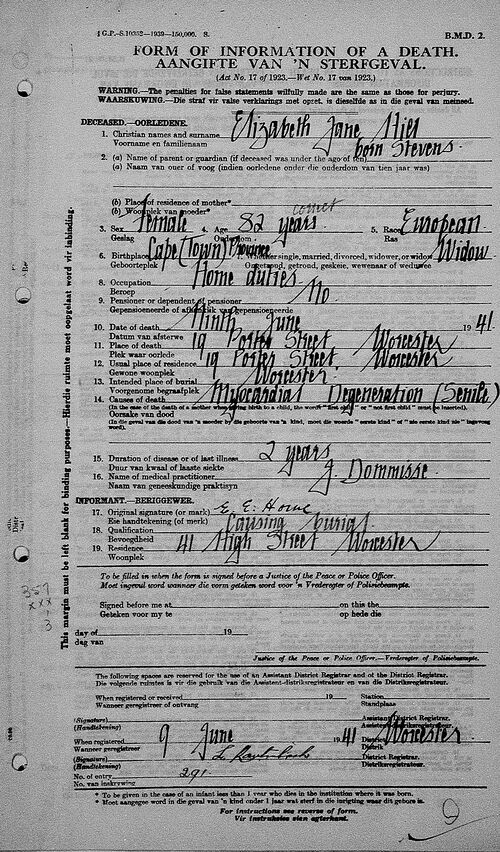 § G.P.-S.10352—1939—150,000. S. B.M.D. 2.
FORM OF INFORMATION OF A DEATH.
AANGIFTE VAN 'N STERFGEVAL.
(Act No. 17 of 1923.—Wet No. 17 van 1923.)
WARNING.—The penalties for false statements wilfully made are the same as those for perjury.
WAARSKUWING.—Die straf vir valse verklarings met opset is dieselfde as in die geval van meineed.
DECEASED.—OORLEDENE.
1. Christian names and surname Elizabeth Jane
Voornaam en familienaam born Stevens
2. (a) Name of parent or guardian (if deceased was under the age of ten)
(a) Naam van ouer of voog (indien oorledene onder die ouderdom van tien jaar was)
(b) Place of residence of mother*
(b) Woonplek van moeder* correct
3. Sex female 4. Age 82 years 5. Race European
Geslag Ouderdom Ras
6. Birthplace Cape (Town) Province 7. Whether single, married, divorced, widower, or widow Widow
Geboorteplek Ongetroud, getroud, geskeie, wewenaar of weduwee
8. Occupation Home duties
Beroep
9. Pensioner or dependent of pensioner No
Gepensioeneerde of afhanklik van gepensioeneerde
10. Date of death Ninth June 1941.
Datum van afsterwe
11. Place of death 19 Porter Street Worcester
Plek waar oorlede
12. Usual place of residence 19 Porter Street Worcester
Gewone woonplek
13. Intended place of burial Worcester
Voorgenome begraafplek
14. Causes of death Myocardial Degeneration (Senile)
(In the case of death of a mother when giving birth to a child, the words "first child" or "not first child" must be inserted).
Oorsake van dood
(In die geval van die dood van 'n moeder by die geboorte van 'n kind, moet die woorde "eerste kind" of "nie eerste kind nie" ingevoeg word).
15. Duration of disease or of last illness 2 years
Duur van kwaal of laaste siekte
16. Name of medical practitioner J. Dommisse
Naam van geneeskundige praktisyn
INFORMANT.—BERIGGEWER.
17. Original signature (or mark) E. E. Horne
Eie handtekening (of merk)
18. Qualification Causing burial
Bevoegdheid
19. Residence 41 High Street Worcester
Woonplek
To be filled in when the form is signed before a Justice of the Peace or Police Officer.
Moet ingevul word wanneer die vorm geteken word voor 'n Vrederegter of Polisiebeampte.
Signed before me at on this the
Geteken voor my te op hede die
day of 19
dag van
Justice of the Peace or Police Officer.—Vrederegter of Polisiebeampte.
The following spaces are reserved for the use of an Assistant District Registrar and of the District Registrar.
Die volgende ruimtes is vir die gebruik van die Assistent-distriksregistrateur en van die Distriksregistrateur.
When registered or received 19 Station
Wanneer geregistreer of ontvang Standplaas
(Signature) Assistant District Registrar.
(Handtekening) Assistent-distriksregistrateur.
When registered 9 June 1941 District Worcester
Wanneer geregistreer Distrik
(Signature) District Registrar.
(Handtekening) Distriksregistrateur.
No. of entry 291
No. van inskrywing
* To be given in the case of an infant less than 1 year who dies in the institution where it was born.
* Moet aangegee word in die geval van 'n kind onder 1 jaar wat sterf in die inrigting waar dit gebore is.
For instructions see reverse of form.
Vir instruksies sien agterkant.
This margin must be left blank for binding purposes.—Hierdie ruimte moet oopgelaat word vir inbinding.